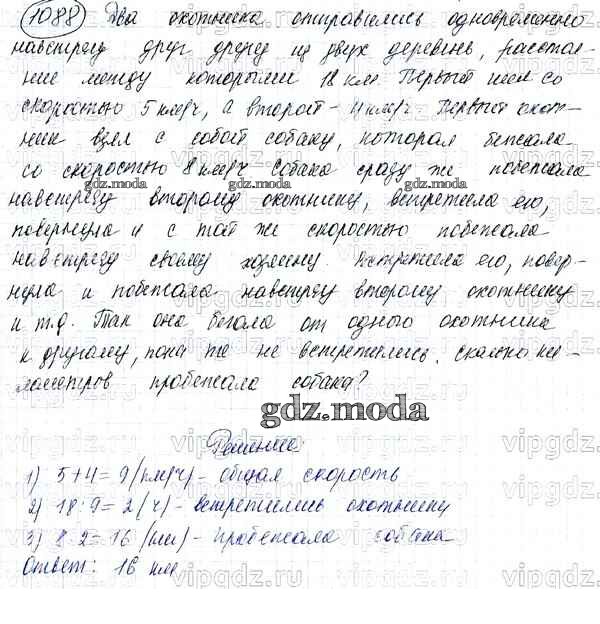 1088 Два охотника отправились одновременно
навстречу друг другу из двух деревень, расстоя-
ние между которыми 18 км. Первый шел со
скоростью 5 км/ч, а второй - 4 км/ч. Первый охот-
ник взял с собой собаку, которая бежала
со скоростью 8 км/ч. Собака сразу же побежала
gdz.moda gdz.moda
навстречу второму охотнику, встретила его,
повернула и с той же скоростью побежала
навстречу своему хозяину. Встретила его, повер-
нула и побежала навстречу второму охотнику
и т.д. Так она бегала от одного охотника
к другому, пока те не встретились. Сколько ки-
лометров пробежала собака?
gdz.moda
Решение
1) 5+4=9 (км/ч) - общая скорость
2) 18:9=2 (ч) - встретились охотники
3) 8·2=16 (км) - пробежала собака
Ответ: 16 км
vipgdz.ru